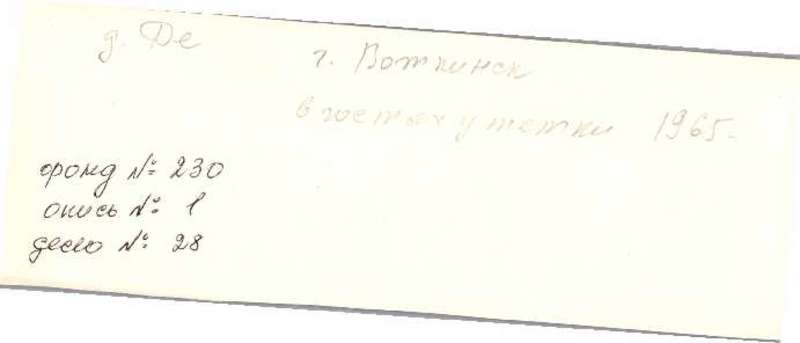 д. Де
г. Воткинск
в гостях у тетки 1965.
фонд № 230
опись № 1
дело № 28